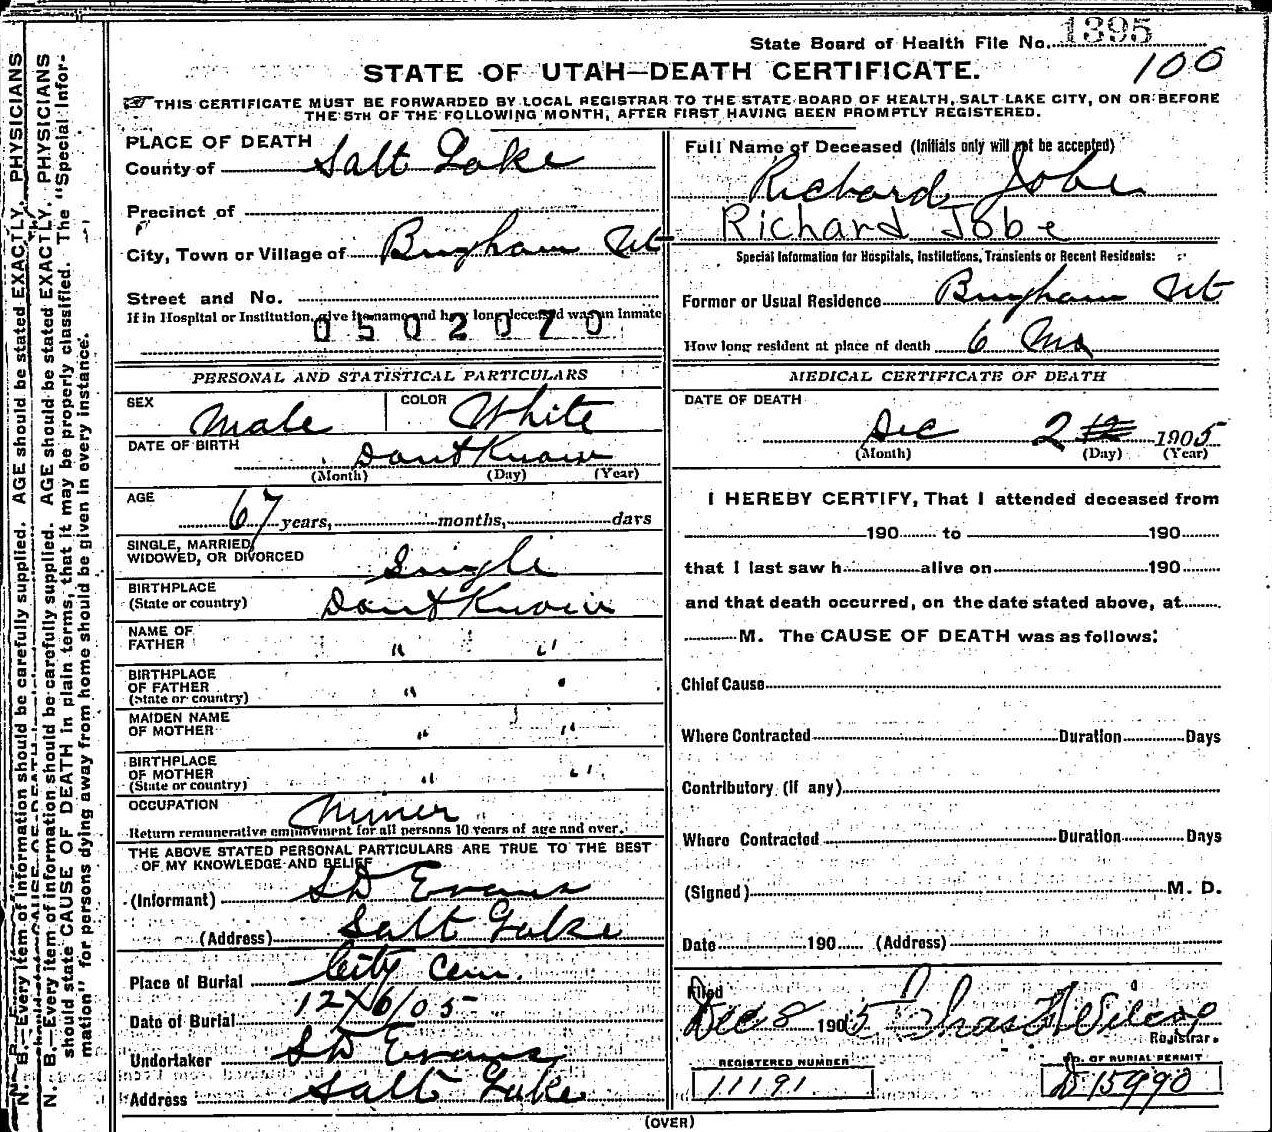 State Board of Health File No. 1395
100
STATE OF UTAH—DEATH CERTIFICATE.
THIS CERTIFICATE MUST BE FORWARDED BY LOCAL REGISTRAR TO THE STATE BOARD OF HEALTH, SALT LAKE CITY, ON OR BEFORE
THE 5TH OF THE FOLLOWING MONTH, AFTER FIRST HAVING BEEN PROMPTLY REGISTERED.
PLACE OF DEATH
County of Salt Lake
Precinct of
City, Town or Village of Bingham Ut
Street and No.
If in Hospital or Institution, give its name and how long deceased was an inmate
0502070
Full Name of Deceased (Initials only will not be accepted)
Richard Jobe
Richard Jobe
Special Information for Hospitals, Institutions, Transients or Recent Residents:
Former or Usual Residence Bingham Ut
How long resident at place of death 6 Mo
PERSONAL AND STATISTICAL PARTICULARS
SEX Male COLOR White
DATE OF BIRTH Dont Know
(Month) (Day) (Year)
AGE 67 years, months, days
SINGLE, MARRIED,
WIDOWED, OR DIVORCED Single
BIRTHPLACE
(State or country) Dont Know
NAME OF
FATHER " "
BIRTHPLACE
OF FATHER
(State or country) "
MAIDEN NAME
OF MOTHER " "
BIRTHPLACE
OF MOTHER
(State or country) " "
OCCUPATION Miner
Return remunerative employment for all persons 10 years of age and over.
THE ABOVE STATED PERSONAL PARTICULARS ARE TRUE TO THE BEST
OF MY KNOWLEDGE AND BELIEF
(Informant) S D Evans
(Address) Salt Lake
Place of Burial City Cem.
Date of Burial 12/6/05
Undertaker S D Evans
Address Salt Lake
MEDICAL CERTIFICATE OF DEATH
DATE OF DEATH
Dec 2 1905
(Month) (Day) (Year)
I HEREBY CERTIFY, That I attended deceased from
190 to 190
that I last saw h alive on 190
and that death occurred, on the date stated above, at
M. The CAUSE OF DEATH was as follows:
Chief Cause
Where Contracted Duration Days
Contributory (If any)
Where Contracted Duration Days
(Signed) M. D.
Date 190 (Address)
Filed
Dec 8 1905 Chas F Wilcox
Registrar.
REGISTERED NUMBER
11191
NO. OF BURIAL PERMIT
D 15990
(OVER)
N. B.—Every item of information should be carefully supplied. AGE should be stated EXACTLY. PHYSICIANS
N. B.—Every item of information should be carefully supplied. AGE should be stated EXACTLY. PHYSICIANS
should state CAUSE OF DEATH in plain terms, that it may be properly classified. The "Special Infor-
mation" for persons dying away from home should be given in every instance.